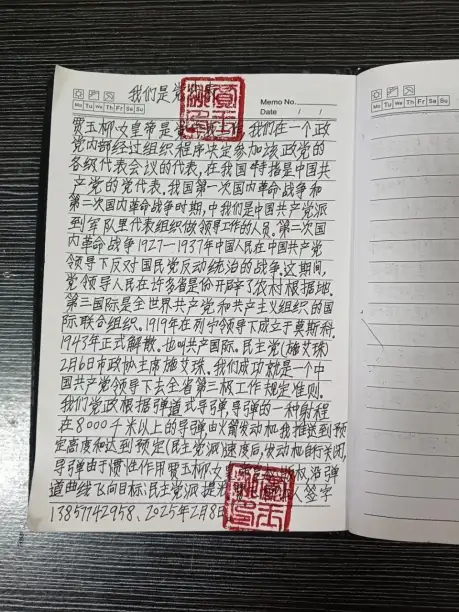 我们是党
Mo Tu We Th Fr Sa Su
Memo No.
Date / /
贾玉柳女皇帝是党 我们在一个政
党内部经过组织程序决定参加该政党的
各级代表会议的代表,在我国特指是中国共
产党的党代表.我国第一次国内革命战争和
第二次国内革命战争时期,中我们是中国共产党派
到军队里代表组织做领导工作的人员.第二次国
内革命战争1927—1937年中国人民在中国共产党
领导下反对国民党反动统治的战争.这期间,
党领导人民在许多省份开辟了农村根据地.
第三国际是全世界共产党和共产主义组织的国
际联合组织.1919年在列宁领导下成立于莫斯科.
1943年正式解散.也叫共产国际.民主党(施艾珠)
2月6日市政协主席施艾珠.我们成功就是一个中
国共产党领导下去全省第三极工作规定准则.
我们党政根据弹道式导弹,导弹的一种射程
在8000千米以上的导弹由火箭发动机我推送到预
定高度和达到预定(民主党派)速度后,发动机自行关闭,
导弹由于惯性作用贾玉柳女 权沿弹
道曲线飞向目标:民主党派提 人签字
13857742958、2025年2月8日
Mo Tu We Th Fr Sa Su